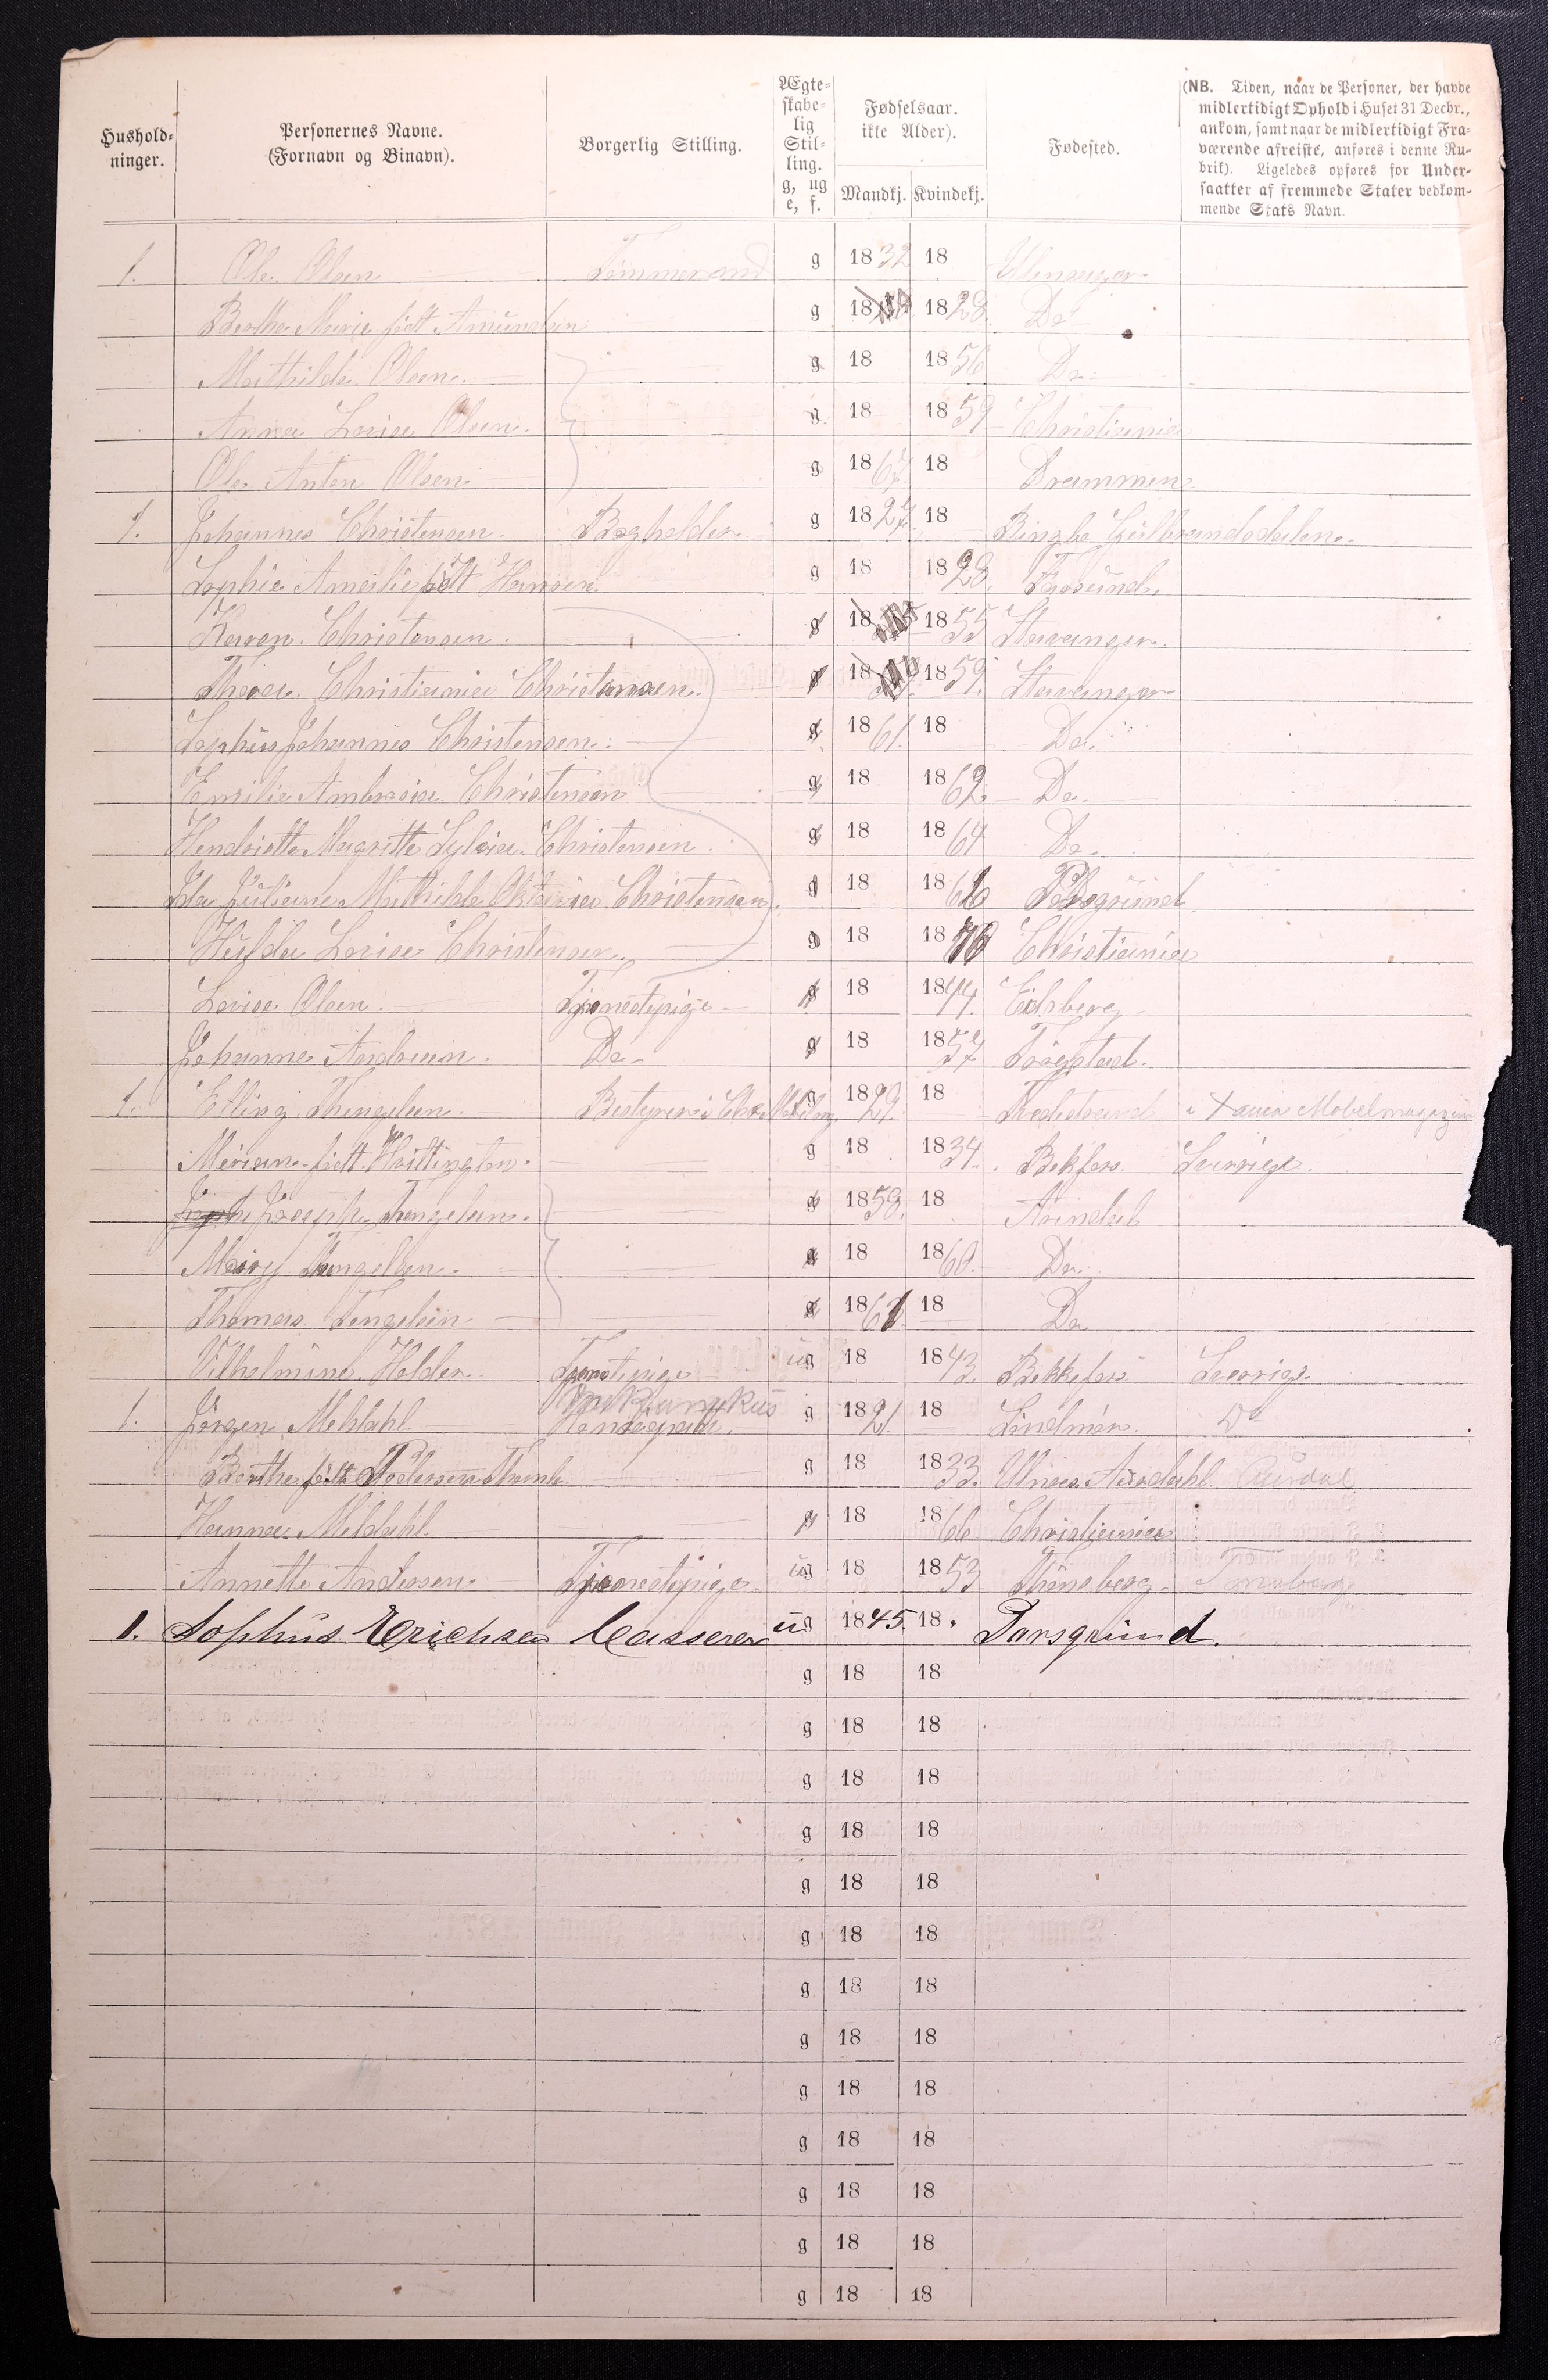 Hushold-
ninger.
Personernes Navne.
(Fornavn og Binavn).
Borgerlig Stilling.
Ægte-
skabe-
lig
Stil-
ling.
g, ug
e, f.
Fødselsaar.
ikke Alder).
Mandkj. Kvindekj.
Fødested.
(NB. Tiden, naar de Personer, der havde
midlertidigt Ophold i Huset 31 Decbr.,
ankom, samt naar de midlertidigt Fra-
værende afreiste, anføres i denne Ru-
brik). Ligeledes opføres for Under-
saatter af fremmede Stater vedkom-
mende Stats Navn.
1. Ole Olsen Tømmermand g 1832 18 Ulensager
Berthe Marie født Amundsen g 18 1828 Do
Mathilde Olsen g 18 1856 Do
Anna Lovise Olsen g 18 1859 Christiania
Ole Anton Olsen g 1867 18 Drammen
1. Johannes Christensen Bogholder g 1827 18 Ringbo Gulbrandsdalen
Sophie Amalie født Hansen g 18 1828 Farsund
Karen Christensen g 18 1855 Stavanger
Thea Christiania Christensen g 18 1859 Stavanger
Sophus Johannes Christensen g 1861 18 Do
Emilie Christensen g 18 1862 Do
Hendriette Magritte Sylvia Christensen g 18 1864 Do
Ida Juliane Mathilde Oktavia Christensen g 18 186 Porsgrund
Hulda Lovise Christensen g 18 1870 Christiania
Lovise Olsen Tjenestepige g 18 1844 Eidsberg
Johanne Andersen Do g 18 185 Trøgstad
1. Elling Thengelsen Bestyrer i g 1829 18 Møbelmagazin
Miriam født Wittington g 18 1834 Sverrige
Joseph Thengelsen g 1858 18 Arindal
Mary Thengelsen g 18 1860 Do
Thomas Tengelsen g 186 18 Do
Vilhelmine Holder Tjenestepige ug 18 1843 Bekkefors Sverrige
1. Jørgen Mehldahl g 1821 18 Do
Berthe født Pedersen g 18 1833 Ulnes Aurdahl Aurdal
Hanna Meldahl g 18 1866 Christiania
Annette Andersen Tjenestepige ug 18 1853 Thønsberg Tønsberg
1. Sophus Erichsen Casserer ug 1845 18 Porsgrund.
g 18 18
g 18 18
g 18 18
g 18 18
g 18 18
g 18 18
g 18 18
g 18 18
g 18 18
g 18 18
g 18 18
g 18 18
g 18 18